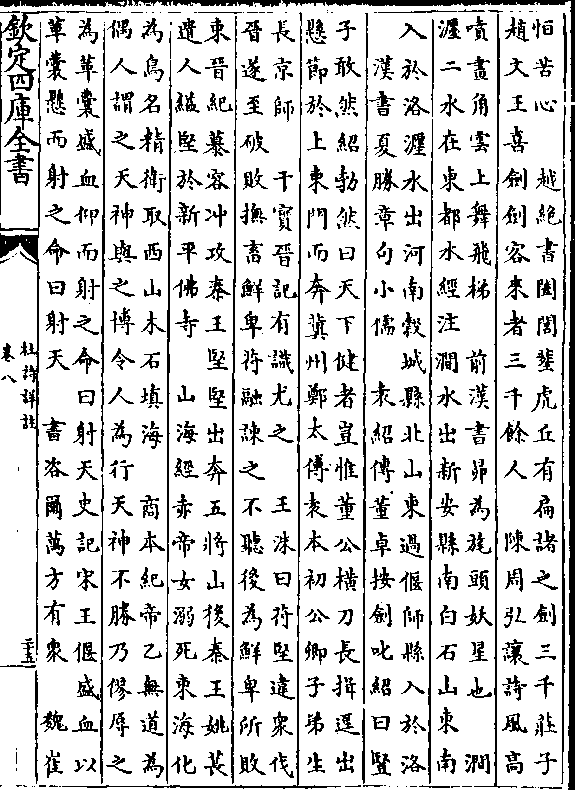 怕苦心　越絶書闔閭𦵏虎丘有扁諸之劍三千莊子
趙文王喜劍劍客來者三千餘人　陳周弘讓詩風高
噴畫角雲上舞飛梯　前漢書昴為旄頭妖星也　澗
瀍二水在東都水經注澗水出新安縣南白石山東南
入於洛瀍水出河南榖城縣北山東過偃師縣入於洛
漢書夏勝章句小儒　袁紹傳董卓按劍叱紹曰豎
子敢然紹勃然曰天下健者豈惟董公横刀長揖逕出
懸節於上東門而奔冀州鄭太傳袁本初公卿子弟生
長京師　干寳晉記有識尤之　王洙曰苻堅違衆伐
晉遂至破敗撫畜鮮卑苻融諫之不聽後為鮮卑所敗
東晉紀慕容冲攻秦王堅堅出奔五將山後秦王姚萇
遣人縊堅於新平佛寺　山海經赤帝女溺死東海化
為鳥名精衛取西山木石填海　商本紀帝乙無道為
偶人謂之天神與之博令人為行天神不勝乃僇辱之
為革囊盛血仰而射之命曰射天史記宋王偃盛血以
革囊懸而射之命曰射天　書咨爾萬方有衆　魏崔
欽定四庫全書
杜詩詳註
卷八
二十五